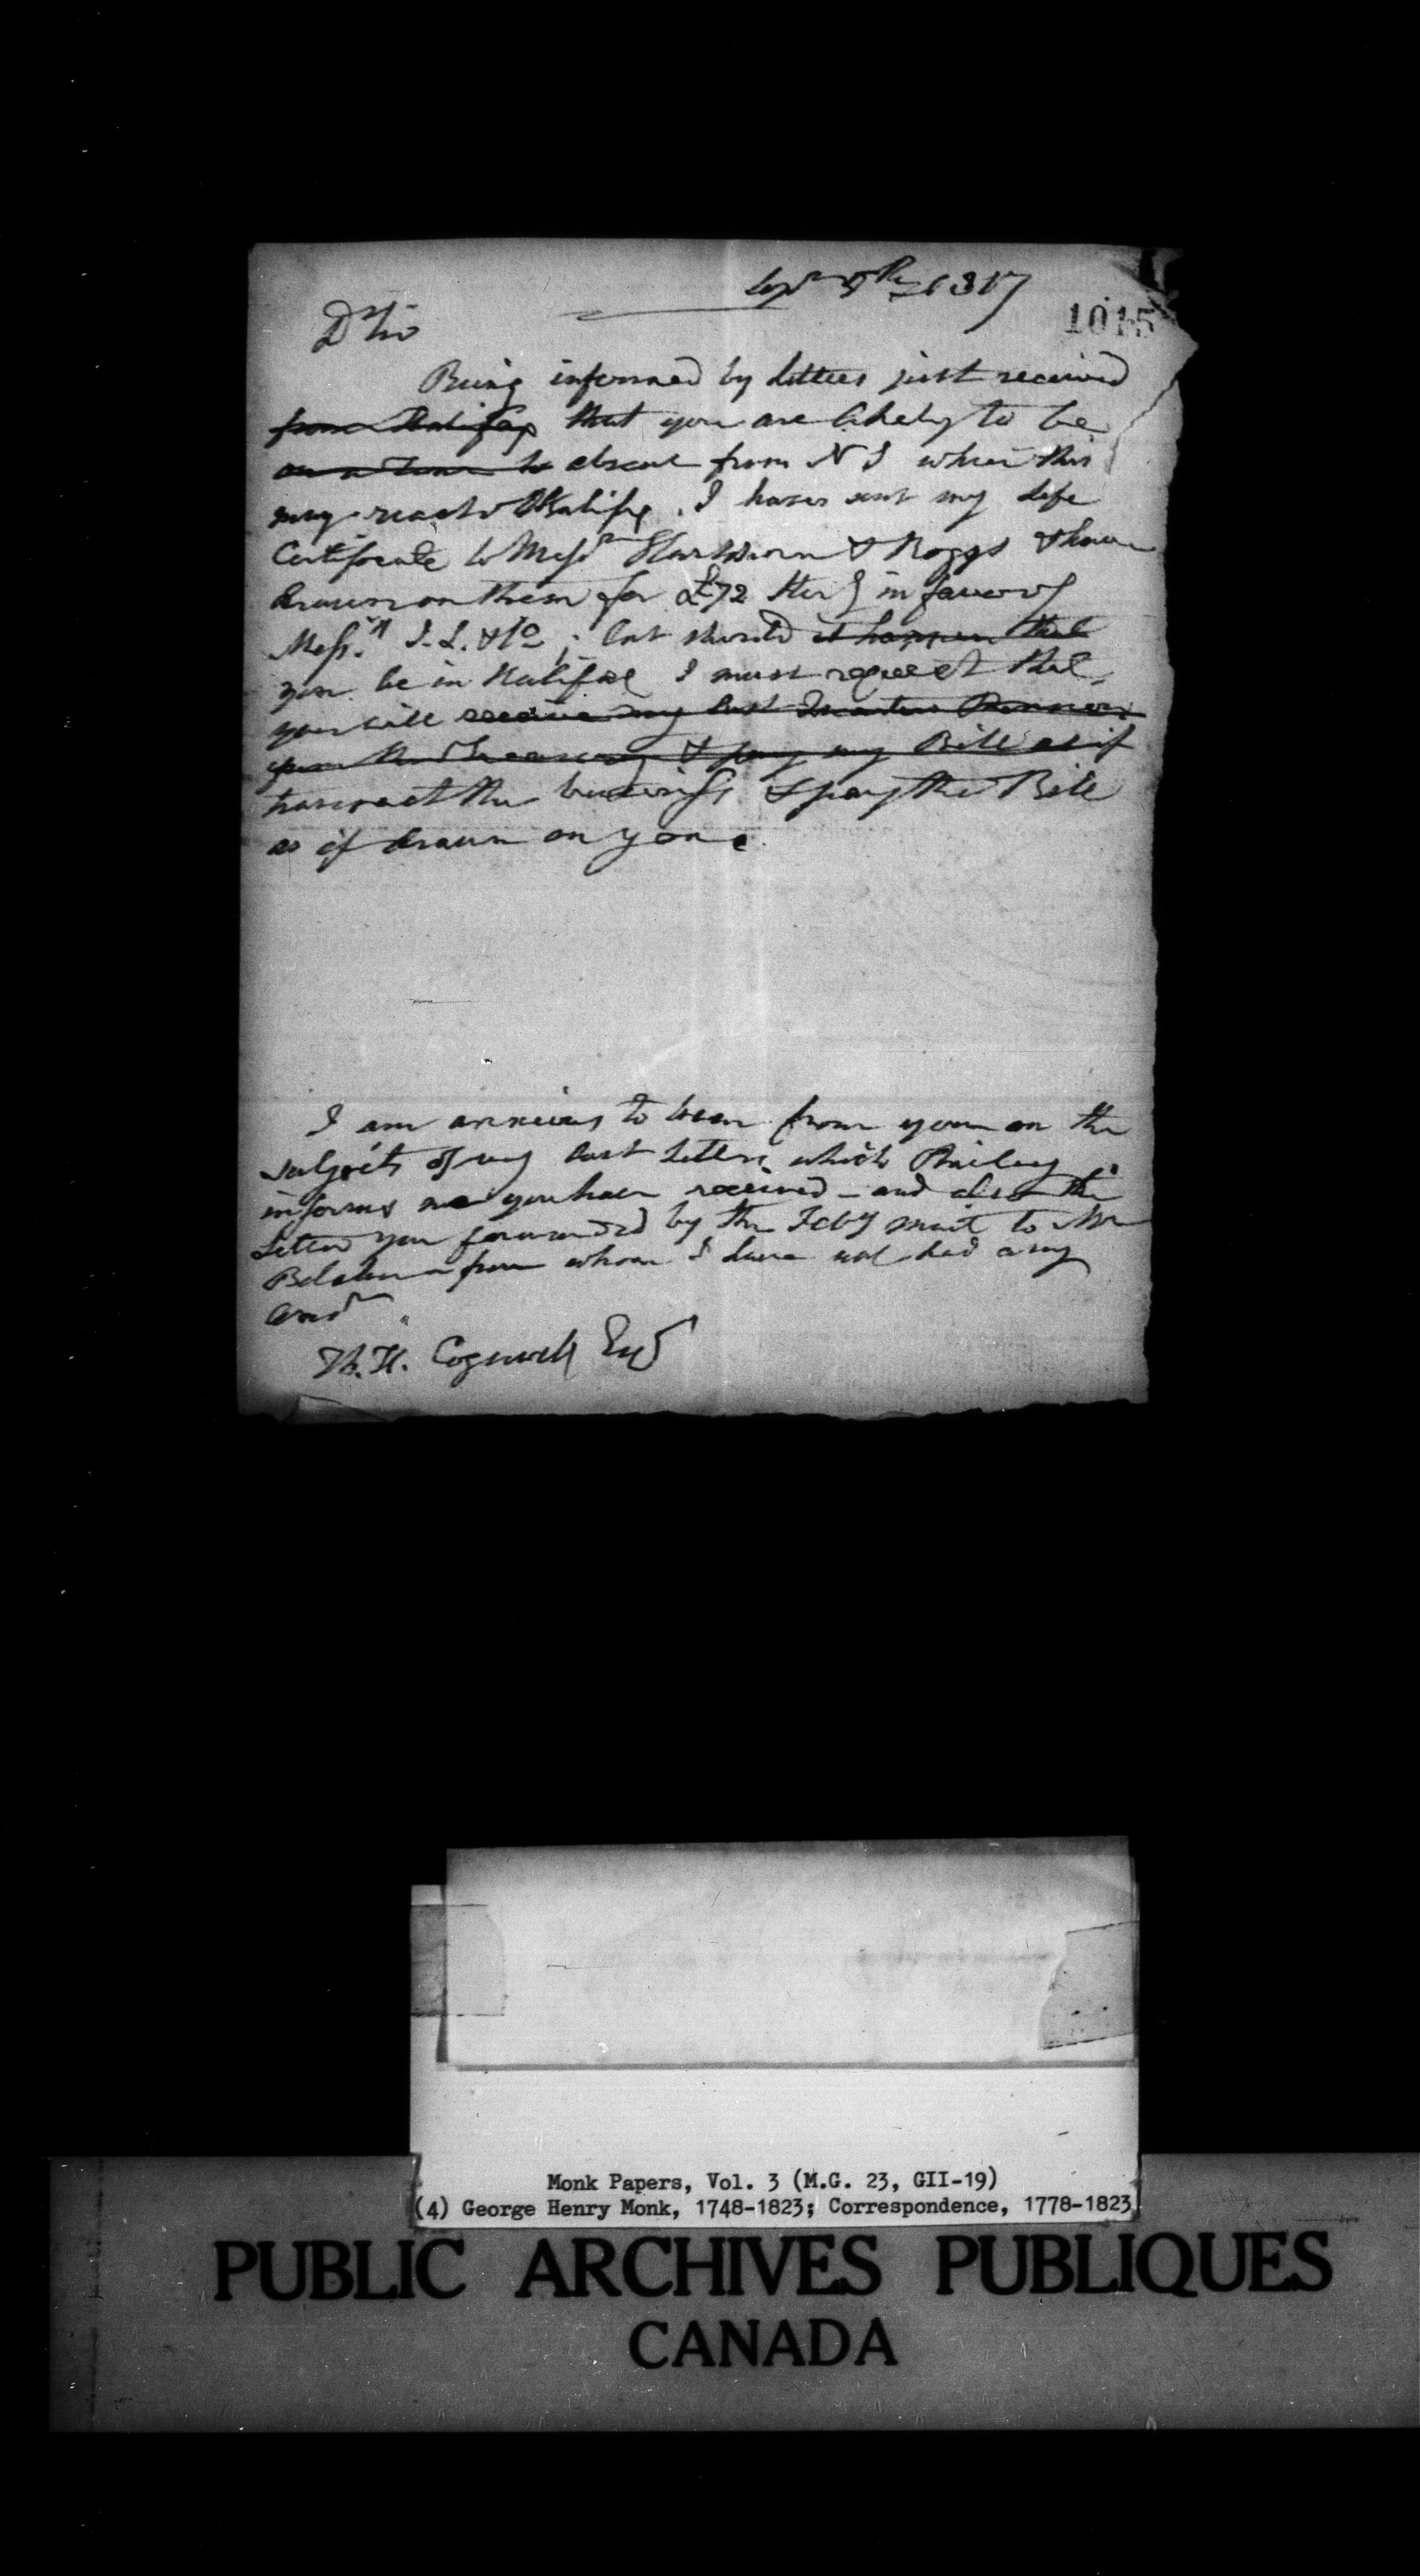 1817
1015
Dr Sir
Being informed by Letters just received
from Halifax that you are likely to be
on a Tour to absent from N S when this
may reach Halifax. I have sent my Life
Certificate to Messrs Hartshorn & Boggs & have
drawn on them for £72 Sterg in favor of
Messrs I. L. & Co; but should it happen that
you be in Halifax I must request that
you will receive my last Quarters Pension
from the Treasury & pay my Bill as if
transact the business & pay the Bill
as if drawn on you.
I am anxious to hear from you on the
subjects of my last Letter, which Bailey
informs me you have received - and also the
Letter you forwarded by the Feby mail to Mr
from whom I have not had any
H. Cogswell Esqr
Monk Papers, Vol. 3 (M.G. 23, GII-19)
(4) George Henry Monk, 1748-1823; Correspondence, 1778-1823
PUBLIC ARCHIVES PUBLIQUES
CANADA